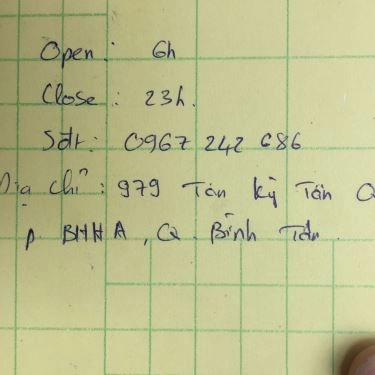 Open: 6h
Close: 23h.
Sđt: 0967 242 686
Địa chỉ: 979 Tân Kỳ Tân Q
p. BHHA, Q. Bình Tân.